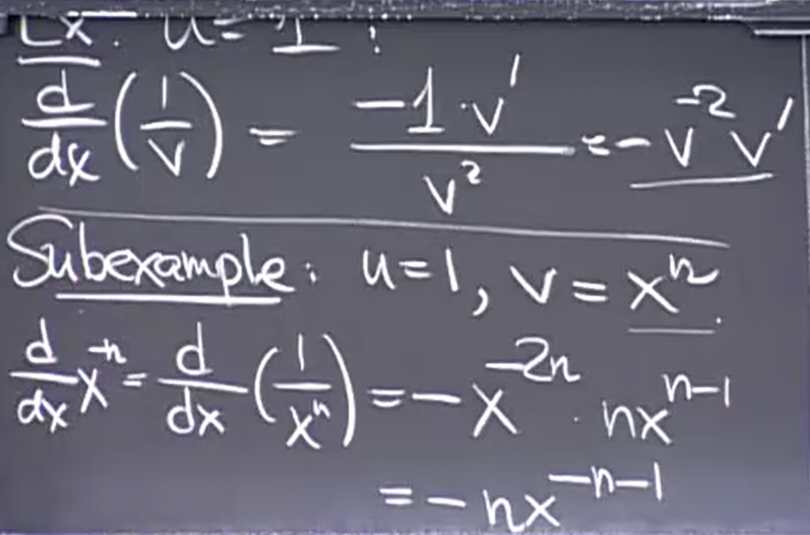 Ex. u = 1 :
d/dx (1/v) = -1·v′/v² = -v⁻² v′
Subexample: u = 1, v = xⁿ.
d/dx x⁻ⁿ = d/dx (1/xⁿ) = -x⁻²ⁿ · nxⁿ⁻¹
= -nx⁻ⁿ⁻¹